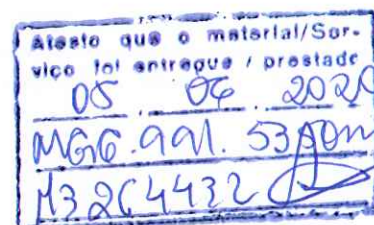 Atesto que o material/Ser-
viço foi entregue / prestado
05 . 06 . 2020
MG16.991.53
M3264432